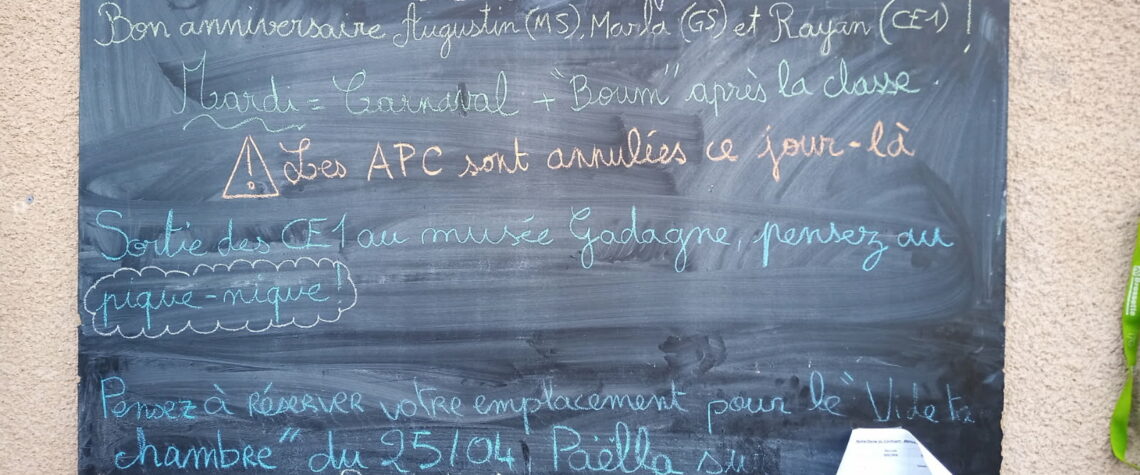 Bon anniversaire Augustin (MS), Marla (GS) et Rayan (CE1) !
Mardi = Carnaval + "Boum" après la classe.
! Les APC sont annulées ce jour-là
Sortie des CE1 au musée Gadagne, pensez au
pique-nique !
Pensez à RÉSERVER votre emplacement pour le "Vide ta
chambre" du 25/04, Paëlla su